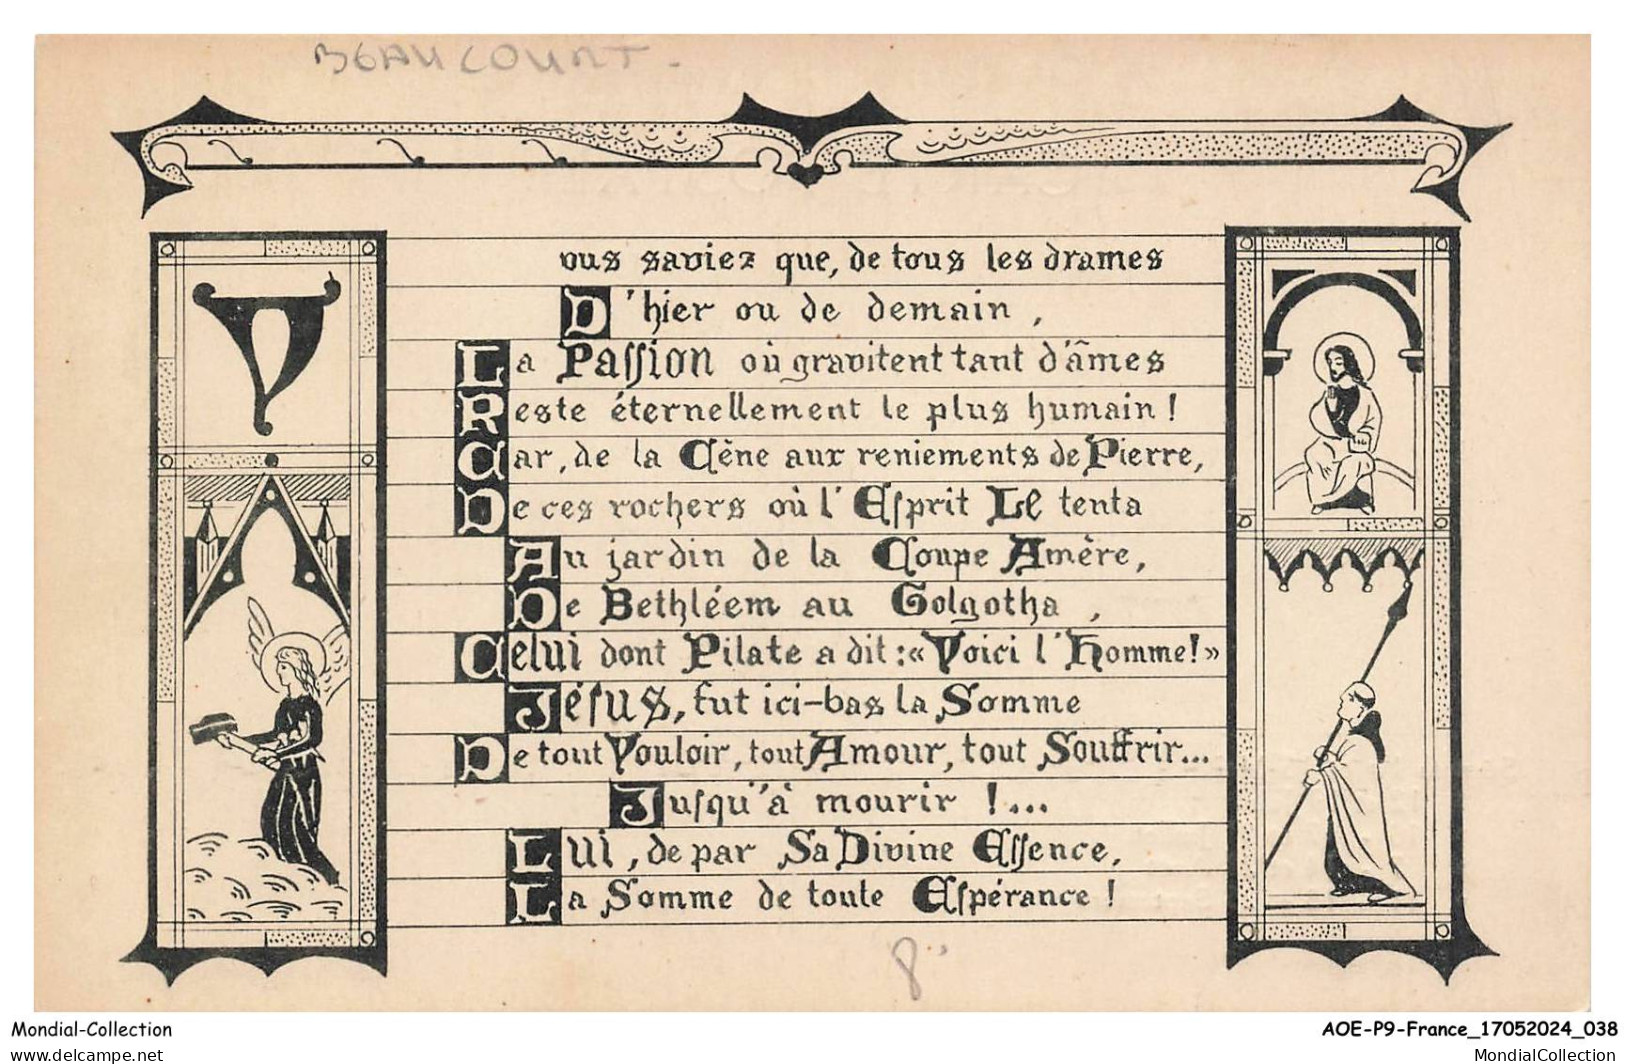 BEAUCOURT -
V
ous saviez que, de tous les drames
D'hier ou de demain,
La Passion où gravitent tant d'âmes
Reste éternellement le plus humain !
Car, de la Cène aux reniements de Pierre,
De ces rochers où l'Esprit Le tenta
Au jardin de la Coupe Amère,
De Bethléem au Golgotha,
Celui dont Pilate a dit : « Voici l'Homme! »
Jésus, fut ici-bas la Somme
De tout Vouloir, tout Amour, tout Souffrir...
Jusqu'à mourir !...
Lui, de par Sa Divine Essence,
La Somme de toute Espérance !
Mondial-Collection
delcampe.net
AOE-P9-France_17052024_038
MondialCollection